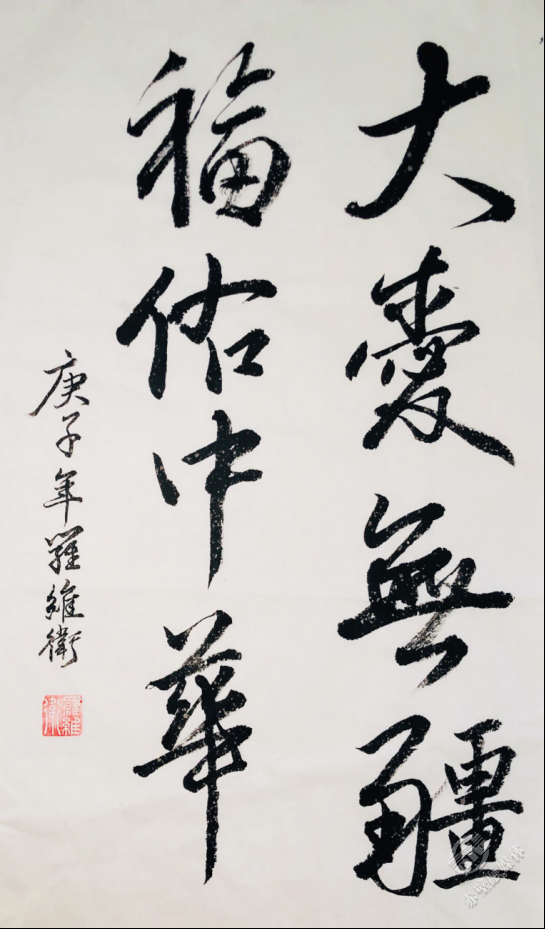 大愛無疆
福佑中華
庚子年羅維衛